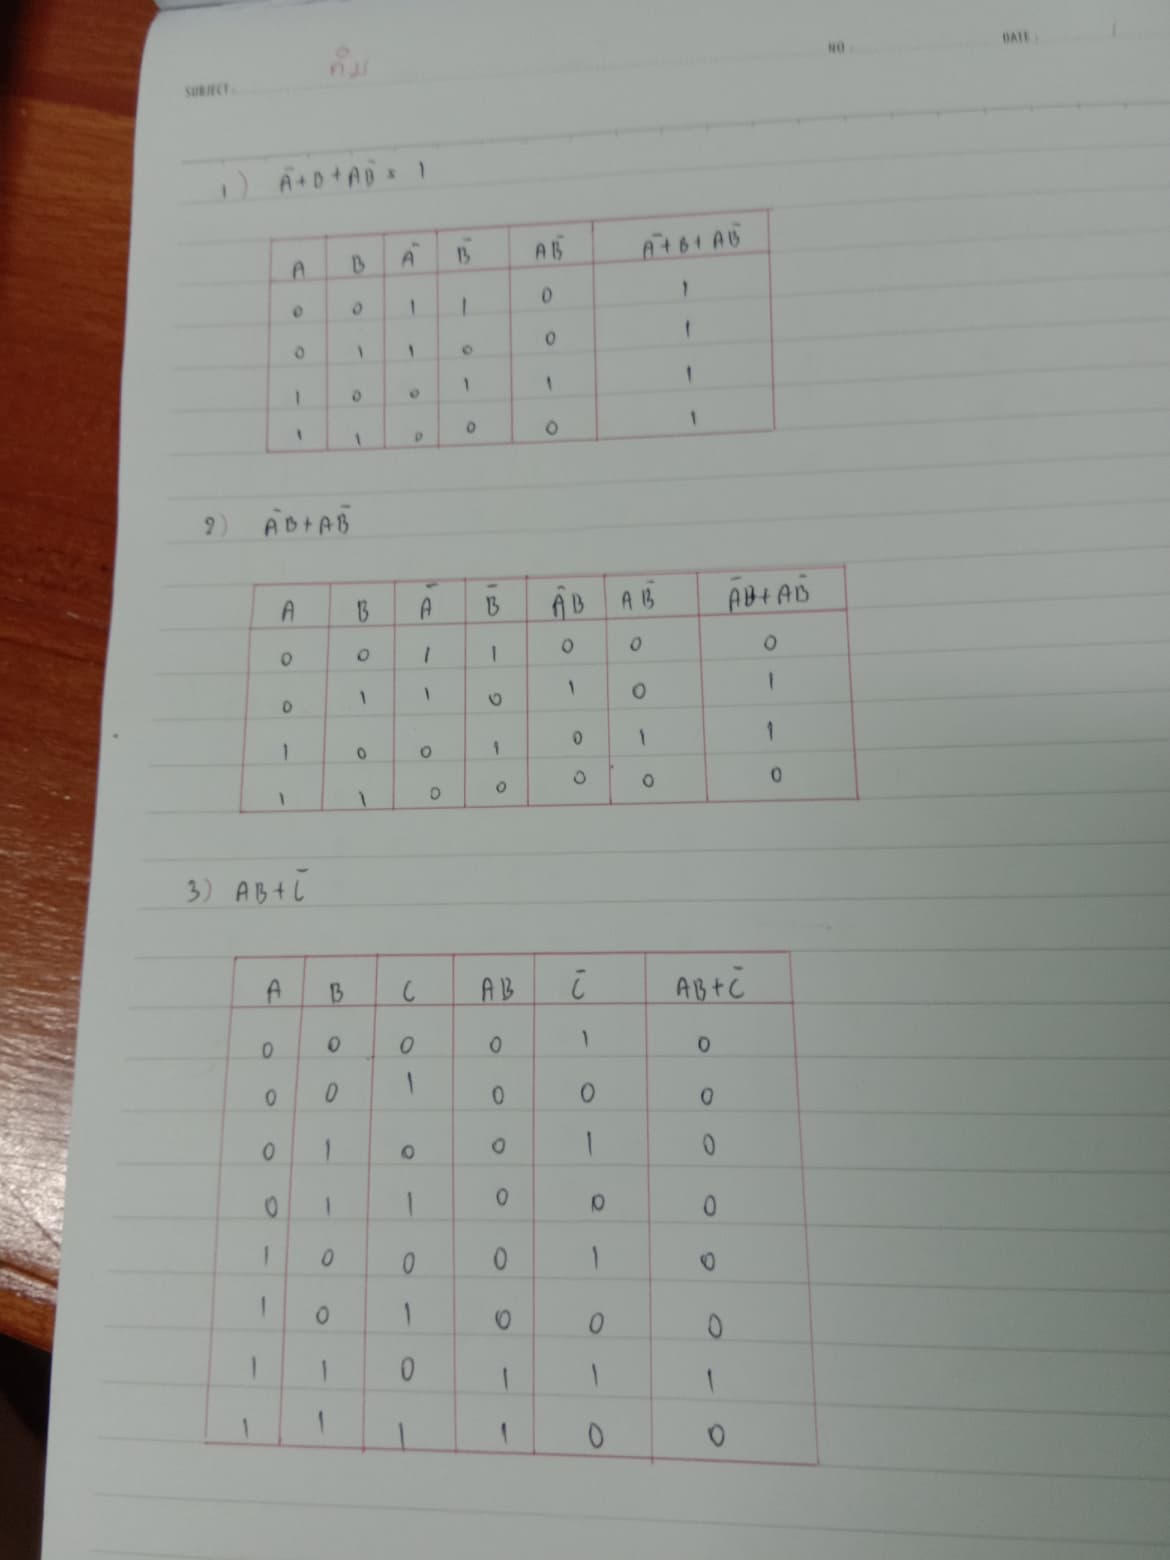 NO.
DATE :
SUBJECT :
1) Ā+B+AB̄ = 1
A B Ā B̄ AB̄ Ā+B+AB̄
0 0 1 1 0 1
0 1 1 0 0 1
1 0 0 1 1 1
1 1 0 0 0 1
2) ĀB+AB̄
A B Ā B̄ ĀB AB̄ ĀB+AB̄
0 0 1 1 0 0 0
0 1 1 0 1 0 1
1 0 0 1 0 1 1
1 1 0 0 0 0 0
3) AB+C̄
A B C AB C̄ AB+C̄
0 0 0 0 1 0
0 0 1 0 0 0
0 1 0 0 1 0
0 1 1 0 0 0
1 0 0 0 1 0
1 0 1 0 0 0
1 1 0 1 1 1
1 1 1 1 0 0